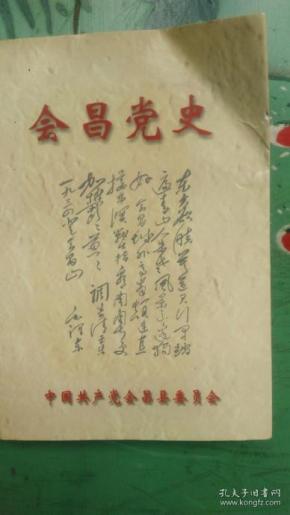 会昌党史
东方欲晓莫道君行早踏
遍青山人未老风景这边独
好会昌城外高峰颠连直
接东溟战士指看南粤更
加郁郁葱葱 调寄清平
一九三四 登会昌山 毛泽东
中国共产党会昌县委员会
孔夫子旧书网